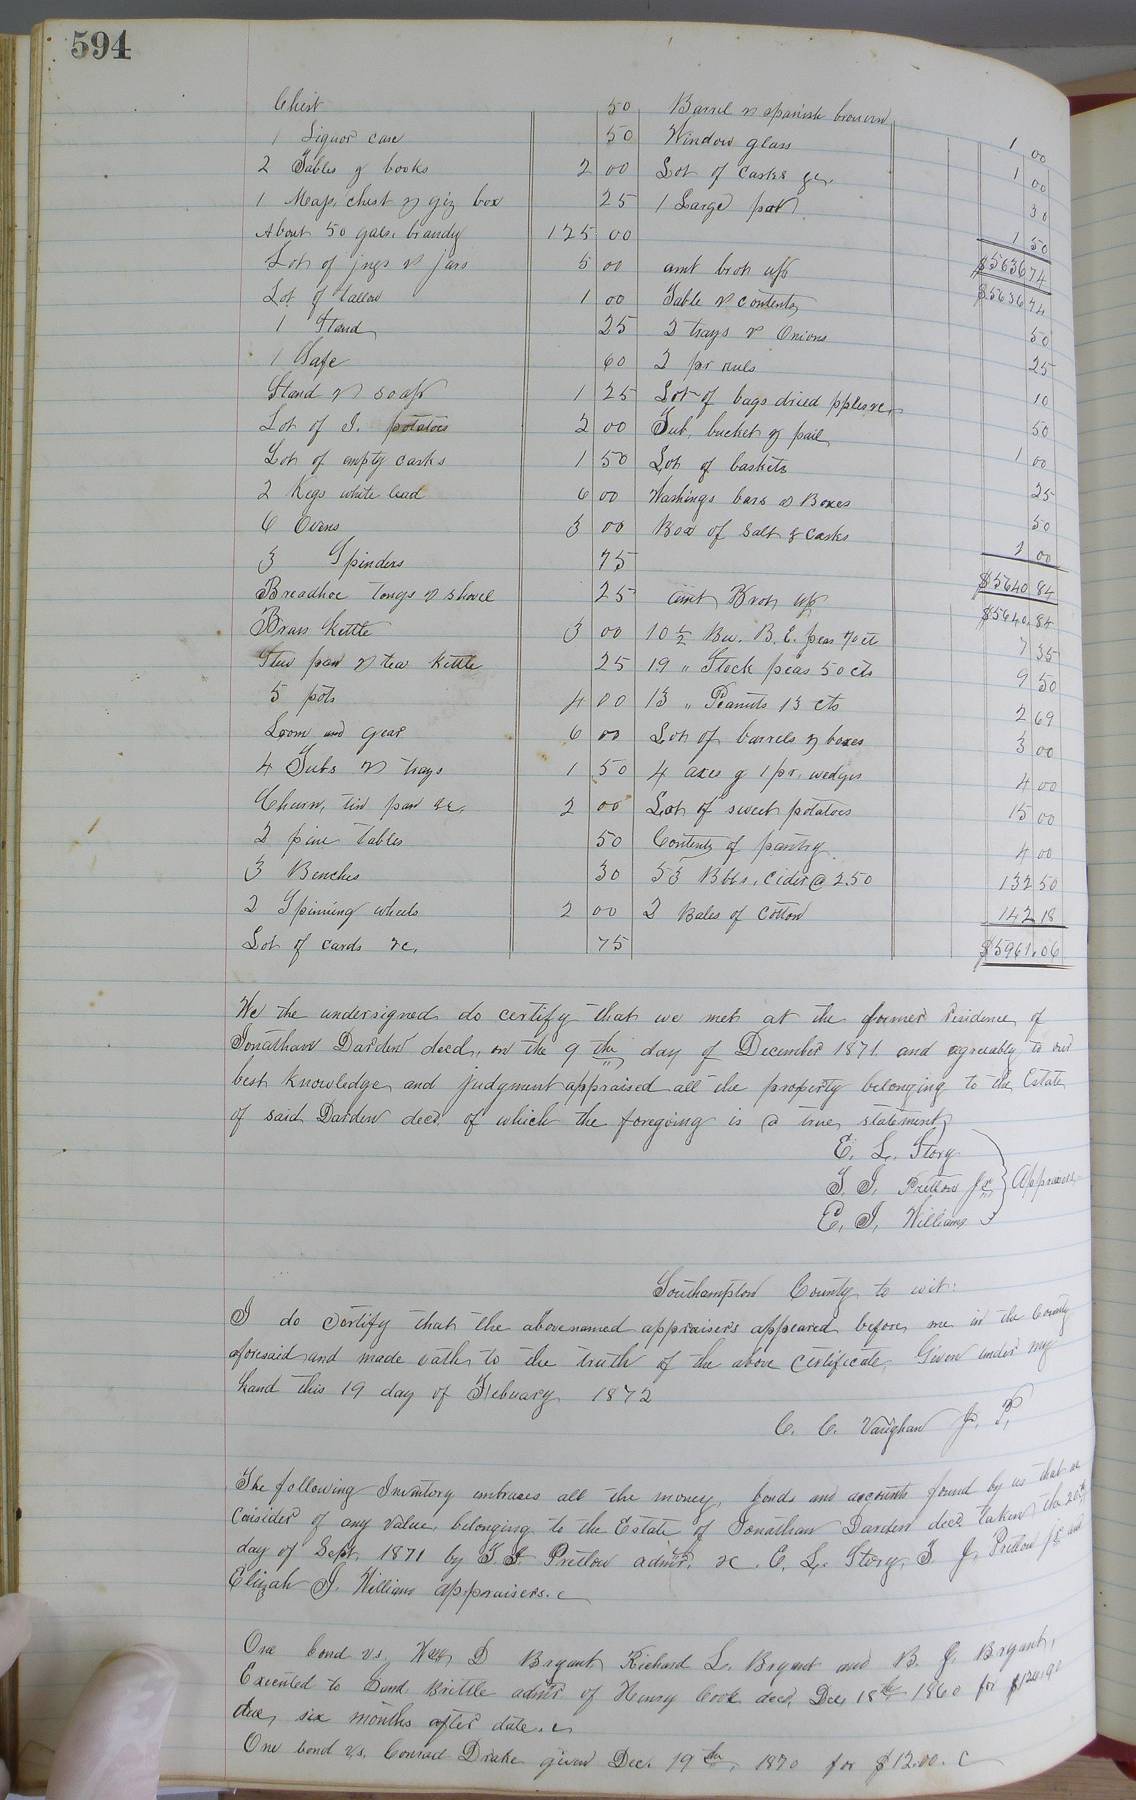 594
Chest 50
1 Liquor case 50
2 Tables & books 2 00
1 Map, chest & giz box 25
About 50 gals. brandy 125 00
Lot of jugs & jars 5 00
Lot of tallow 1 00
1 Stand 25
1 Safe 60
Stand & soap 1 25
Lot of I. potatoes 2 00
Lot of empty casks 1 50
2 Kegs white lead 6 00
6 Ovens 3 00
3 Spinders 75
Breadhoe tongs & shovel 25
Brass kettle 3 00
Stew pan & tea kettle 25
5 pots 4 00
Loom and gear 6 00
4 Tubs & trays 1 50
Churn, tin pan &c. 2 00
2 pine tables 50
3 Benches 30
2 Spinning wheels 2 00
Lot of cards &c. 75
Barrel & spanish brown 1 00
Window glass 1 00
Lot of casks &c 30
1 Large pot 1 50
$5636 74
amt brot up $5636 74
Table & contents 50
2 trays & Onions 25
2 pr 10
Lot of bags dried pples &c 50
Tub, bucket & pail 1 00
Lot of baskets 25
Washings bars & Boxes 50
Box of Salt & casks 2 00
$5640 84
amt Brot up $5640.84
10 1/2 Bu. B. E. peas 70 cts 7 35
19 " Stock peas 50 cts 9 50
13 " Peanuts 13 cts 2 69
Lot of barrels & boxes 3 00
4 axes & 1 pr. wedges 4 00
Lot of sweet potatoes 15 00
Contents of pantry 4 00
53 Bbls. cider @ 2.50 132 50
2 Bales of cotton 142 18
$5961.06
We the undersigned do certify that we met at the former residence of
Jonathan Darden decd., on the 9 th day of December 1871 and agreeably to our
best knowledge and judgment appraised all the property belonging to the Estate
of said Darden decd. of which the foregoing is a true statement
E. L. Story
T. J. Pretlow Jr. Appraisers
E. J. Williams
Southampton County to wit:
I do certify that the abovenamed appraisers appeared before me in the County
aforesaid and made oath to the truth of the above certificate, Given under my
hand this 19 day of Febuary 1872
C. C. Vaughan J. P.
The following Inventory embraces all the money, bonds and accounts found by us that we
consider of any value, belonging to the Estate of Jonathan Darden decd. taken the 20th
day of Sept. 1871 by T. J. Pretlow admr. &c. E. L. Story, T. J. Pretlow jr. and
Elizah J. Williams appraisers.
One bond vs. Wm. D Bryant Richard L. Bryant and B. J. Bryant,
Executed to Saml. Brittle admr of Henry Cook decd. Dec 18th 1860 for $120.90
due, six months after date.
One bond vs. Conrad Drake given Dec. 19th, 1870 for $12.00.